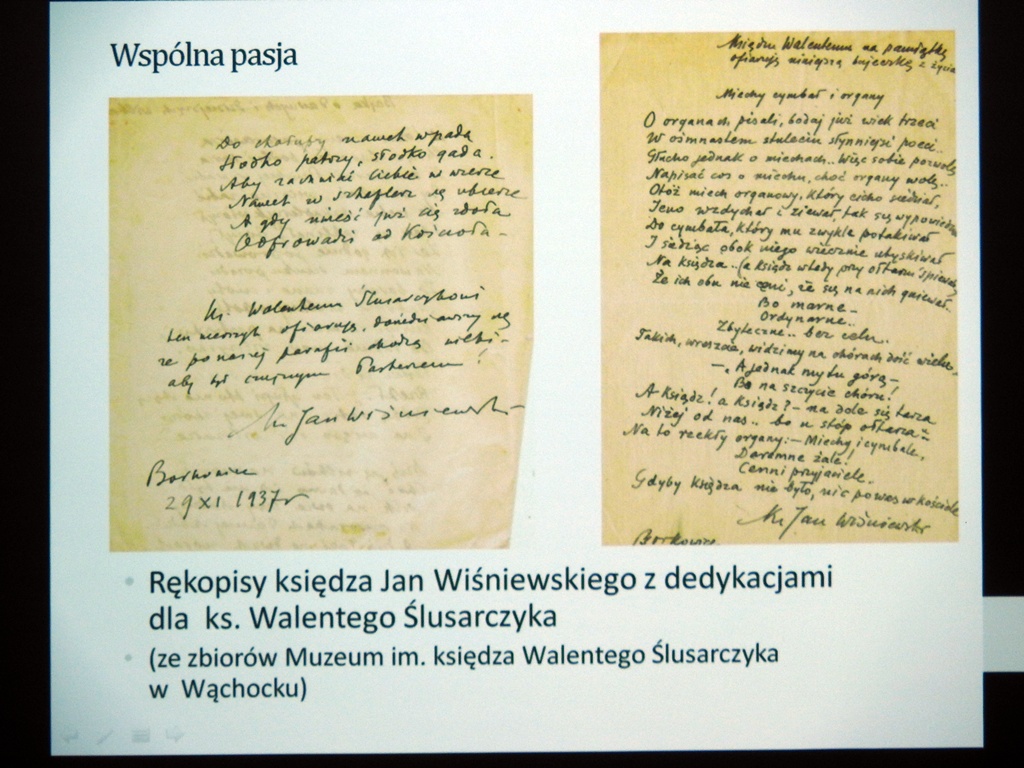 Wspólna pasja
Do chałupy nawet wpada
Słodko patrzy, słodko gada.
Aby zachwiać Ciebie w wierze
Nawet w szkaplerz się ubierze
A gdy nieść już się zdoła
Odprowadzi od Kościoła –
Ks. Walentemu Ślusarczykowi
ten wierszyk ofiaruję, dowiedziawszy się
że po naszej parafii chodzą
aby być czujnym Pasterzem!
Ks Jan Wiśniewski
Borkowice
29 XI 1937 r
Księdzu Walentemu na pamiątkę
ofiaruję niniejszą bajeczkę z życia
Miechy cymbał i organy
O organach pisali, bodaj już wiek trzeci
W ośmnastem stuleciu słynniejsi poeci..
Głucho jednak o miechach.. Więc sobie pozwolę
Napisać coś o miechu, choć organy wolę..
Otóż miech organowy, który cicho siedział,
Jeno wzdychał i ziewał, tak się wypowiedział
Do cymbała, który mu zwykle potakiwał
I siedząc obok niego wiecznie utyskiwał
Na księdza.. (a ksiądz wtedy przy ołtarzu śpiewał)
Że ich obu nie ceni, że się na nich gniewał..
Bo marne –
Ordynarne..
Zbyteczne.. bez celu..
Takich, wreszcie, widzimy na chórach dość wielu..
– A jednak my tu górą –
Bo na szczycie chóru!
A Ksiądz! a Ksiądz? – na dole się tarza
Niżej od nas.. bo u stóp ołtarza –
Na to rzekły organy: – Miechy i cymbale,
Daremne żale!
Cenni przyjaciele..
Gdyby księdza nie było, nic po was w kościele
Ks Jan Wiśniewski
Borkowice
• Rękopisy księdza Jan Wiśniewskiego z dedykacjami
dla ks. Walentego Ślusarczyka
• (ze zbiorów Muzeum im. księdza Walentego Ślusarczyka
w Wąchocku)